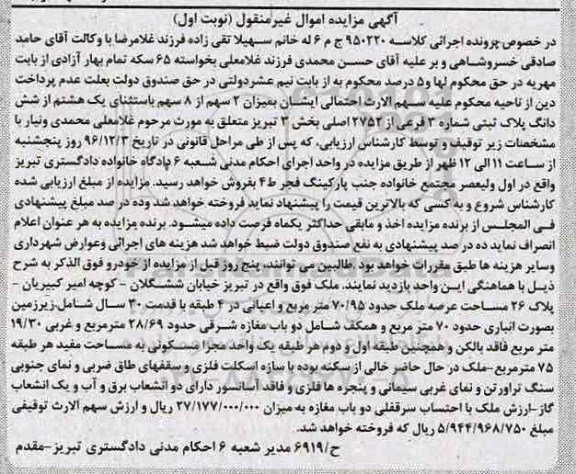 آگهی مزایده اموال غیرمنقول (نوبت اول)
در خصوص پرونده اجرائی کلاسه ۹۵۰۲۲۰ ج م ۶ له خانم سهیلا تقی زاده فرزند غلامرضا با وکالت آقای حامد
صادقی خسروشاهی و بر علیه آقای حسن محمدی فرزند غلامعلی بخواسته ۶۵ سکه تمام بهار آزادی از بابت
مهریه در حق محکوم لها و۵ درصد محکوم به از بابت نیم عشردولتی در حق صندوق دولت بعلت عدم پرداخت
دین از ناحیه محکوم علیه سهم الارث احتمالی ایشان بمیزان ۲ سهم از ۸ سهم باستثنای یک هشتم از شش
دانگ پلاک ثبتی شماره ۳ فرعی از ۲۷۵۲ اصلی بخش ۳ تبریز متعلق به مورث مرحوم غلامعلی محمدی ونیار با
مشخصات زیر توقیف و توسط کارشناس ارزیابی، که پس از طی مراحل قانونی در تاریخ ۹۶/۱۲/۳ روز پنجشنبه
از ساعت ۱۱ الی ۱۲ ظهر از طریق مزایده در واحد اجرای احکام مدنی شعبه ۶ دادگاه خانواده دادگستری تبریز
واقع در اول ولیعصر مجتمع خانواده جنب پارکینگ فجر ط۴ بفروش خواهد رسید. مزایده از مبلغ ارزیابی شده
کارشناس شروع و به کسی که بالاترین قیمت را پیشنهاد نماید فروخته خواهد شد وده در صد مبلغ پیشنهادی
فی المجلس از برنده مزایده اخذ و مابقی حداکثر یکماه فرصت داده میشود. برنده مزایده به هر عنوان اعلام
انصراف نماید ده در صد پیشنهادی به نفع صندوق دولت ضبط خواهد شد هزینه های اجرائی وعوارض شهرداری
وسایر هزینه ها طبق مقررات خواهد بود .طالبین می توانند، پنج روز قبل از مزایده از خودرو فوق الذکر به شرح
ذیل با هماهنگی این واحد بازدید نمایند. ملک فوق واقع در تبریز خیابان ششگلان - کوچه امیر کبیریان -
پلاک ۲۶ مساحت عرصه ملک حدود ۷۰/۹۵ متر مربع و اعیانی در ۴ طبقه با قدمت ۳۰ سال شامل،زیرزمین
بصورت انباری حدود ۷۰ متر مربع و همکف شامل دو باب مغازه شرقی حدود ۲۸/۶۹ مترمربع و غربی ۱۹/۳۰
متر مربع فاقد بالکن و همچنین طبقه اول و دوم هر طبقه یک واحد مجزا مسکونی به مساحت مفید هر طبقه
۷۵ مترمربع-ملک در حال حاضر خالی از سکنه بوده با سازه اسکلت فلزی و سقفهای طاق ضربی و نمای جنوبی
سنگ تراورتن و نمای غربی سیمانی و پنجره ها فلزی و فاقد آسانسور دارای دو انشعاب برق و آب و یک انشعاب
گاز-ارزش ملک با احتساب سرقفلی دو باب مغازه به میزان ۲۷/۱۷۷/۰۰۰/۰۰۰ ریال و ارزش سهم الارث توقیفی
مبلغ ۵/۹۴۴/۹۶۸/۷۵۰ ریال که فروخته خواهد شد.
ح/۶۹۱۹ مدیر شعبه ۶ احکام مدنی دادگستری تبریز-مقدم